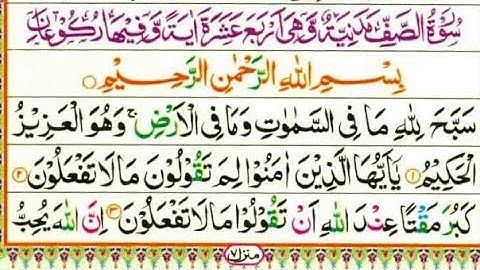 سُوْرَةُ الصَّفِّ مَدَنِيَّةٌ وَّهِیَ اَرْبَعَ عَشْرَةَ اٰيَةً وَّفِيْهَا رُكُوْعَانِ
بِسْمِ اللّٰهِ الرَّحْمٰنِ الرَّحِيْمِ
سَبَّحَ لِلّٰهِ مَا فِی السَّمٰوٰتِ وَمَا فِی الْاَرْضِ ۚ وَهُوَ الْعَزِيْزُ
الْحَكِيْمُ ۝۱ يٰۤاَيُّهَا الَّذِيْنَ اٰمَنُوْا لِمَ تَقُوْلُوْنَ مَا لَا تَفْعَلُوْنَ ۝۲
كَبُرَ مَقْتًا عِنْدَ اللّٰهِ اَنْ تَقُوْلُوْا مَا لَا تَفْعَلُوْنَ ۝۳ اِنَّ اللّٰهَ يُحِبُّ
منزل ۷